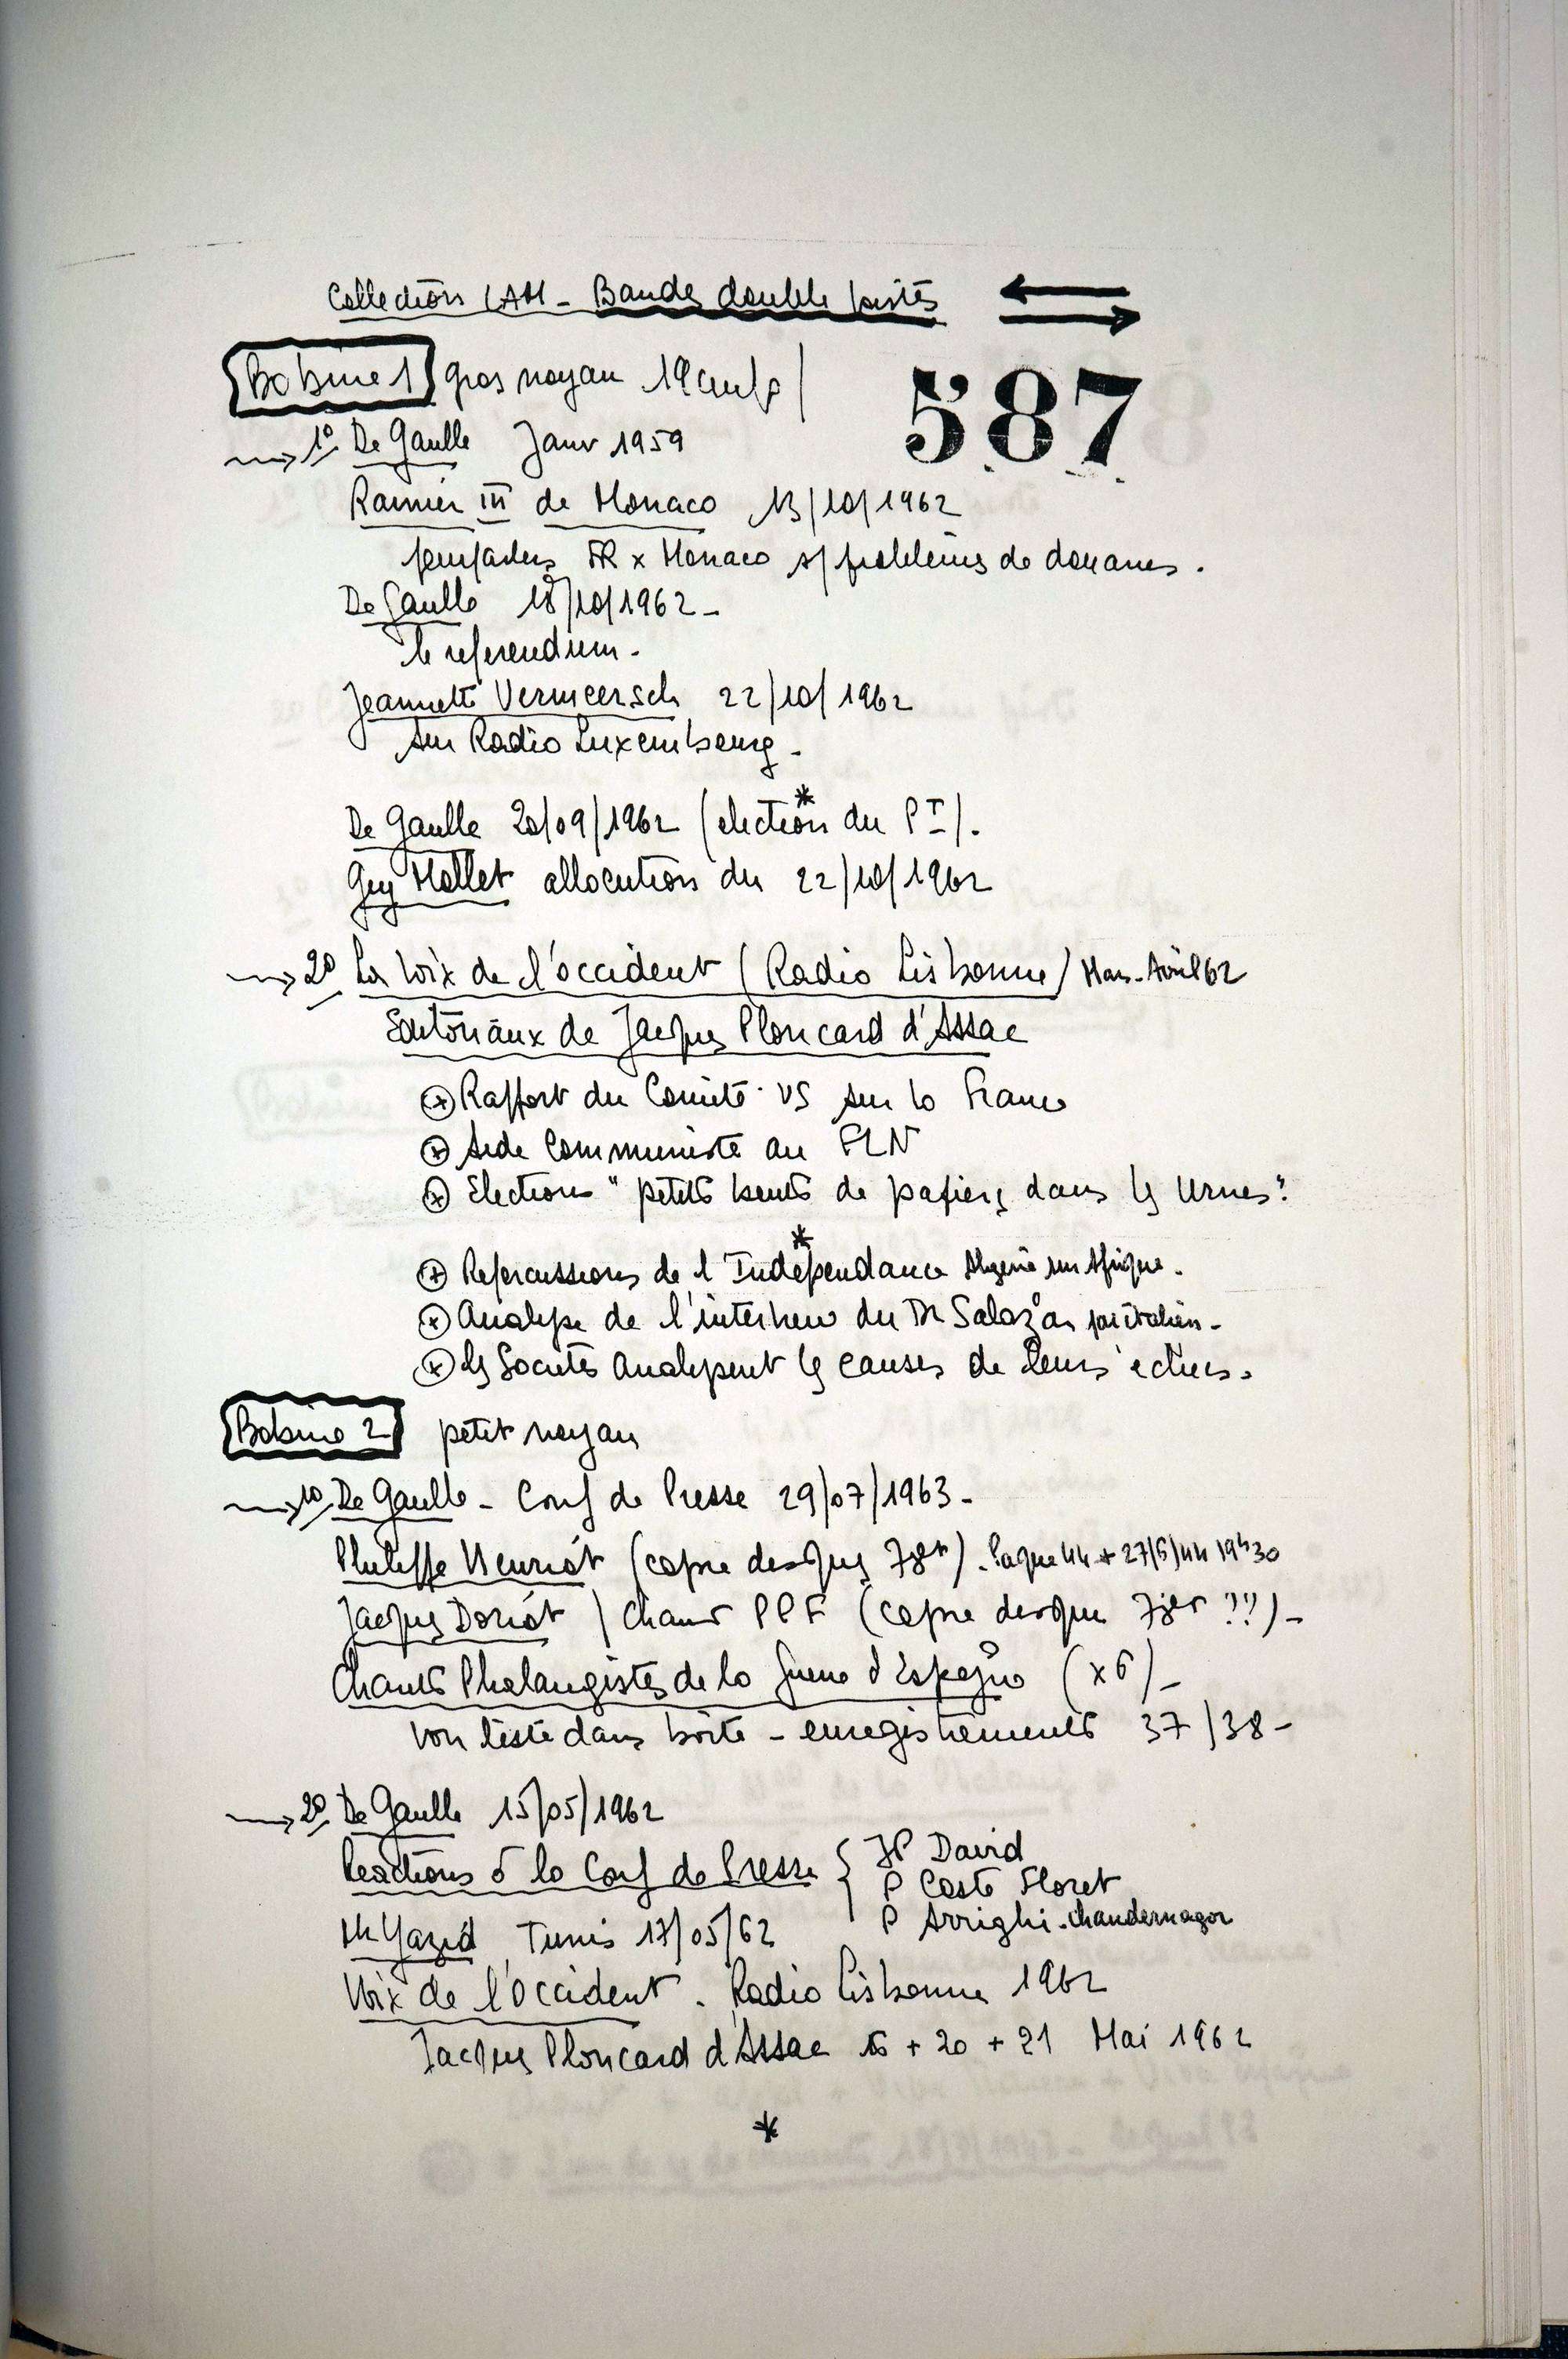 Collection LAM - Bandes double pistes
Bobine 1 gros noyau 19cm/s
587
→ 1° De Gaulle Janv 1959
Rainier III de Monaco 13/10/1962
pourparlers FR x Monaco s/ problèmes de douanes.
De Gaulle 18/10/1962-
le referendum.
Jeannette Vermeersch 22/10/1962
sur Radio Luxembourg-
De Gaulle 20/09/1962 (election du PT).
Guy Mollet allocution du 22/10/1962
→ 2° La Voix de l'occident (Radio Lisbonne) Mars-Avril 62
Editoriaux de Jacques Ploncard d'Assac
Rapport du Comité US sur la France
Aide Communiste au FLN
Elections "petits bouts de papiers dans les Urnes"
*
Repercussions de l'Indépendance Algerie sur Afrique.
Analyse de l'interview du Dr Salazar par italien-
les Socialistes Analysent les causes de leurs echecs.
Bobine 2 petit noyau
→ 1° De Gaulle - Conf de Presse 29/07/1963-
Philippe Henriot (copie disques 78t). Paque 44 + 27/6/44 19h30
Jacques Doriot / Chant PPF (copie disque 78t ??)-
Chants Phalangistes de la Guerre d'Espagne (x6)-
Voir liste dans boite - enregistrements 37/38-
→ 2° De Gaulle 15/05/1962
Reactions à la Conf de Presse { JP David
P Coste Floret
P Arrighi - Chandernagor
M Yazid Tunis 17/05/62
Voix de l'Occident. Radio Lisbonne 1962
Jacques Ploncard d'Assac + 20 + 21 Mai 1962
*